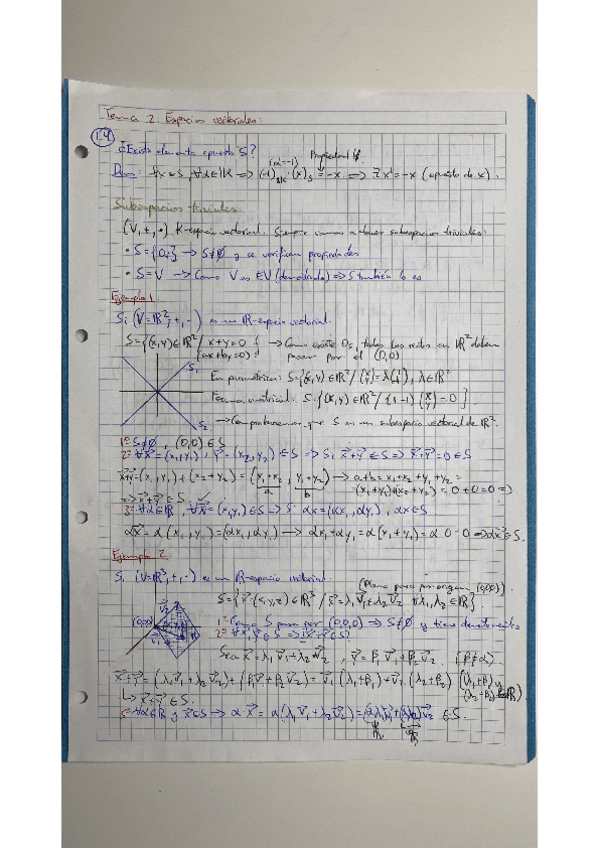 Tema 2: Espacios vectoriales.
1.4
¿Existe elemento opuesto S?
(α=-1) Propiedad
Dem: ∀x∈S, ∀α∈K => (-1)·(x) = -x => ∃ x' = -x (opuesto de x).
Subespacios triviales.
(V, +, ·) K-espacio vectorial. Siempre vamos a tener subespacios triviales:
• S={0} → S≠∅ y se verifican propiedades
• S=V → Como V es EV (demostrado) => S también lo es
Ejemplo 1.
Si (V=ℝ², +, ·) es un ℝ-espacio vectorial.
S={(x,y)∈ℝ² / x+y=0} → Como existe 0, todas las rectas en ℝ² deben
(ax+by=0) pasar por el (0,0)
S₁
En paramétrica: S={(x,y)∈ℝ² / (x y)=λ(1 -1), λ∈ℝ}
Forma matricial: S={(x,y)∈ℝ² / (1 1)(x y)=0}.
S₂
→ Comprobaremos que S es un subespacio vectorial de ℝ².
1º S≠∅, (0,0)∈S
2º ∀x=(x₁,y₁), y=(x₂,y₂)∈S => Si x+y∈S => x+y=0∈S
x+y=(x₁,y₁)+(x₂+y₂)=(x₁+x₂, y₁+y₂) → a+b=x₁+x₂+y₁+y₂=
a b =(x₁+y₁)+(x₂+y₂)=0+0=0 =>
=> x+y∈S ✓
3º ∀α∈ℝ, ∀x=(x,y)∈S → αx=(αx₁,αy₁), αx∈S
αx=α(x₁,y₁)=(αx₁,αy₁) → αx₁+αy₁=α(x₁+y₁)=α·0=0 => αx∈S.
Ejemplo 2.
Si (V=ℝ³, +, ·) es un ℝ-espacio vectorial.
(Plano pasa por origen (0,0,0)).
S={x=(x,y,z)∈ℝ³ / x=λ₁v₁+λ₂v₂ ∀λ₁,λ₂∈ℝ}.
(0,0,0)
1º Como S pasa por (0,0,0) => S≠∅ y tiene elementos
2º ∀x,y∈S => ¿x+y∈S?
Sea x=λ₁v₁+λ₂v₂, y=β₁v₁+β₂v₂. (β≠α).
x+y=(λ₁v₁+λ₂v₂)+(β₁v₁+β₂v₂)=v₁(λ₁+β₁)+v₂(λ₂+β₂) (λ₁+β₁) y (λ₂+β₂)∈ℝ
↳ x+y∈S.
3º ∀α∈ℝ y x∈S → αx=α(λ₁v₁+λ₂v₂)=(αλ₁)v₁+(αλ₂)v₂∈S.
ℝ ℝ